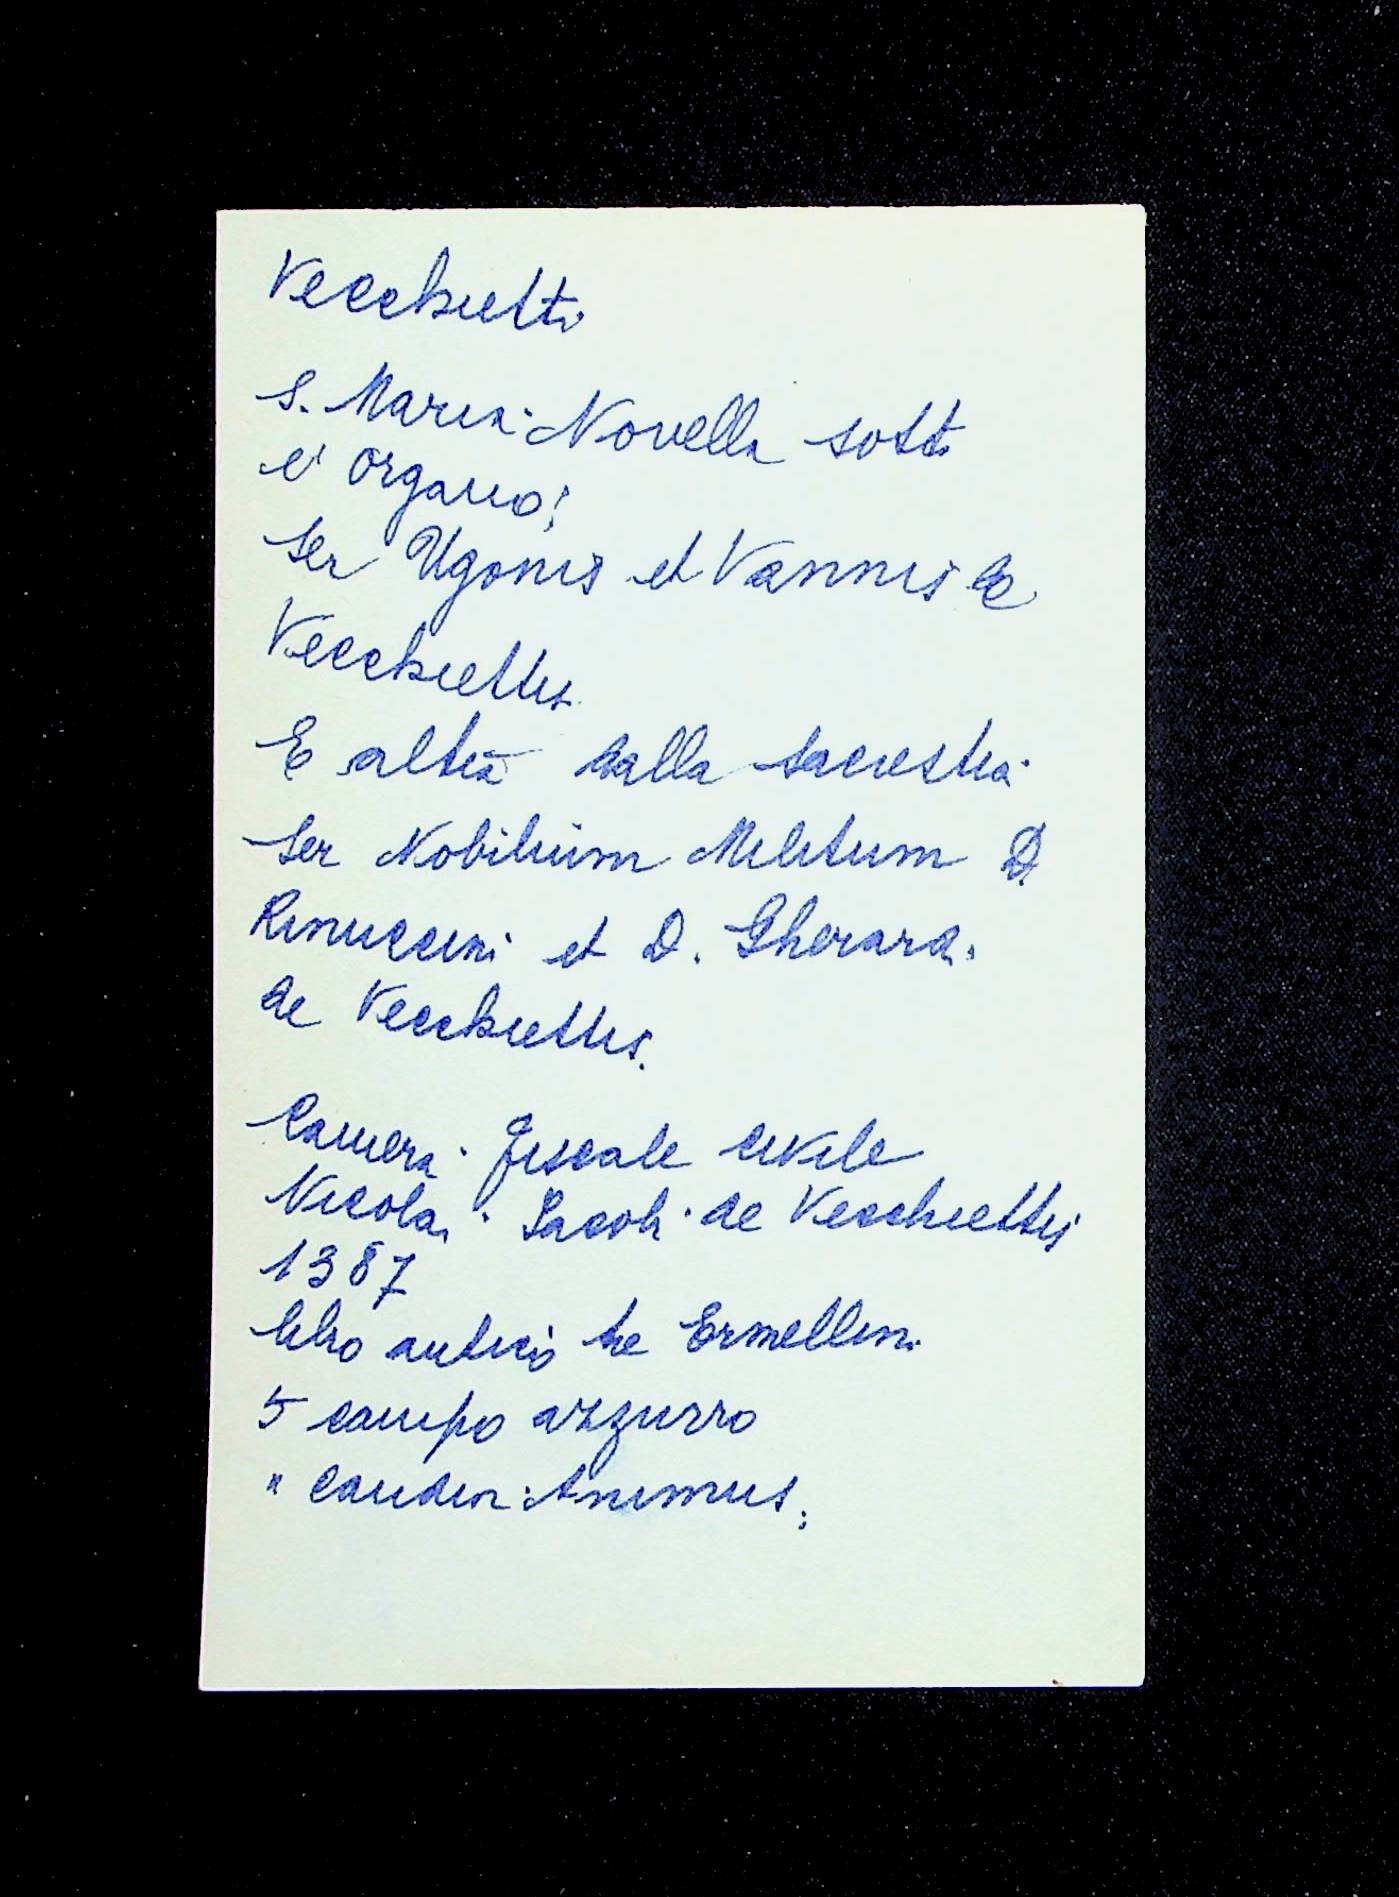 Vecchietti
S. Maria Novella sotto
l'organo:
Ser Ugonis et Vannis de
Vecchiettis
E altra dalla sacrestia
Ser Nobilium Militum D.
Rinuccini et D. Gherardi
de Vecchiettis.
Camera fiscale civile
Nicolai Iacobi de Vecchiettis
1387
libro antico tre Ermellini
5 campo azzurro
" Candor: Animus;